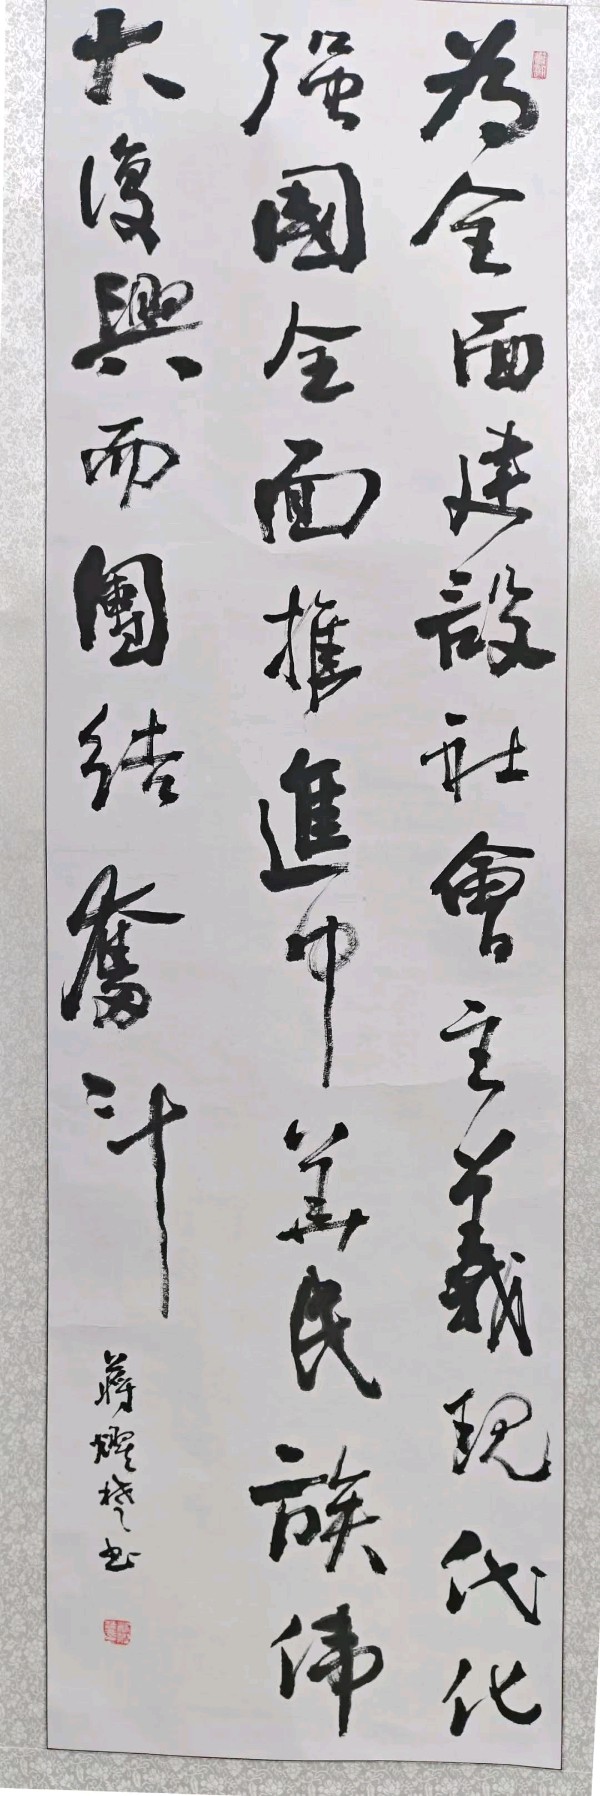 为全面建设社會主義现代化
强國全面推進中華民族伟
大復興而團结奮斗
蒋耀楚书